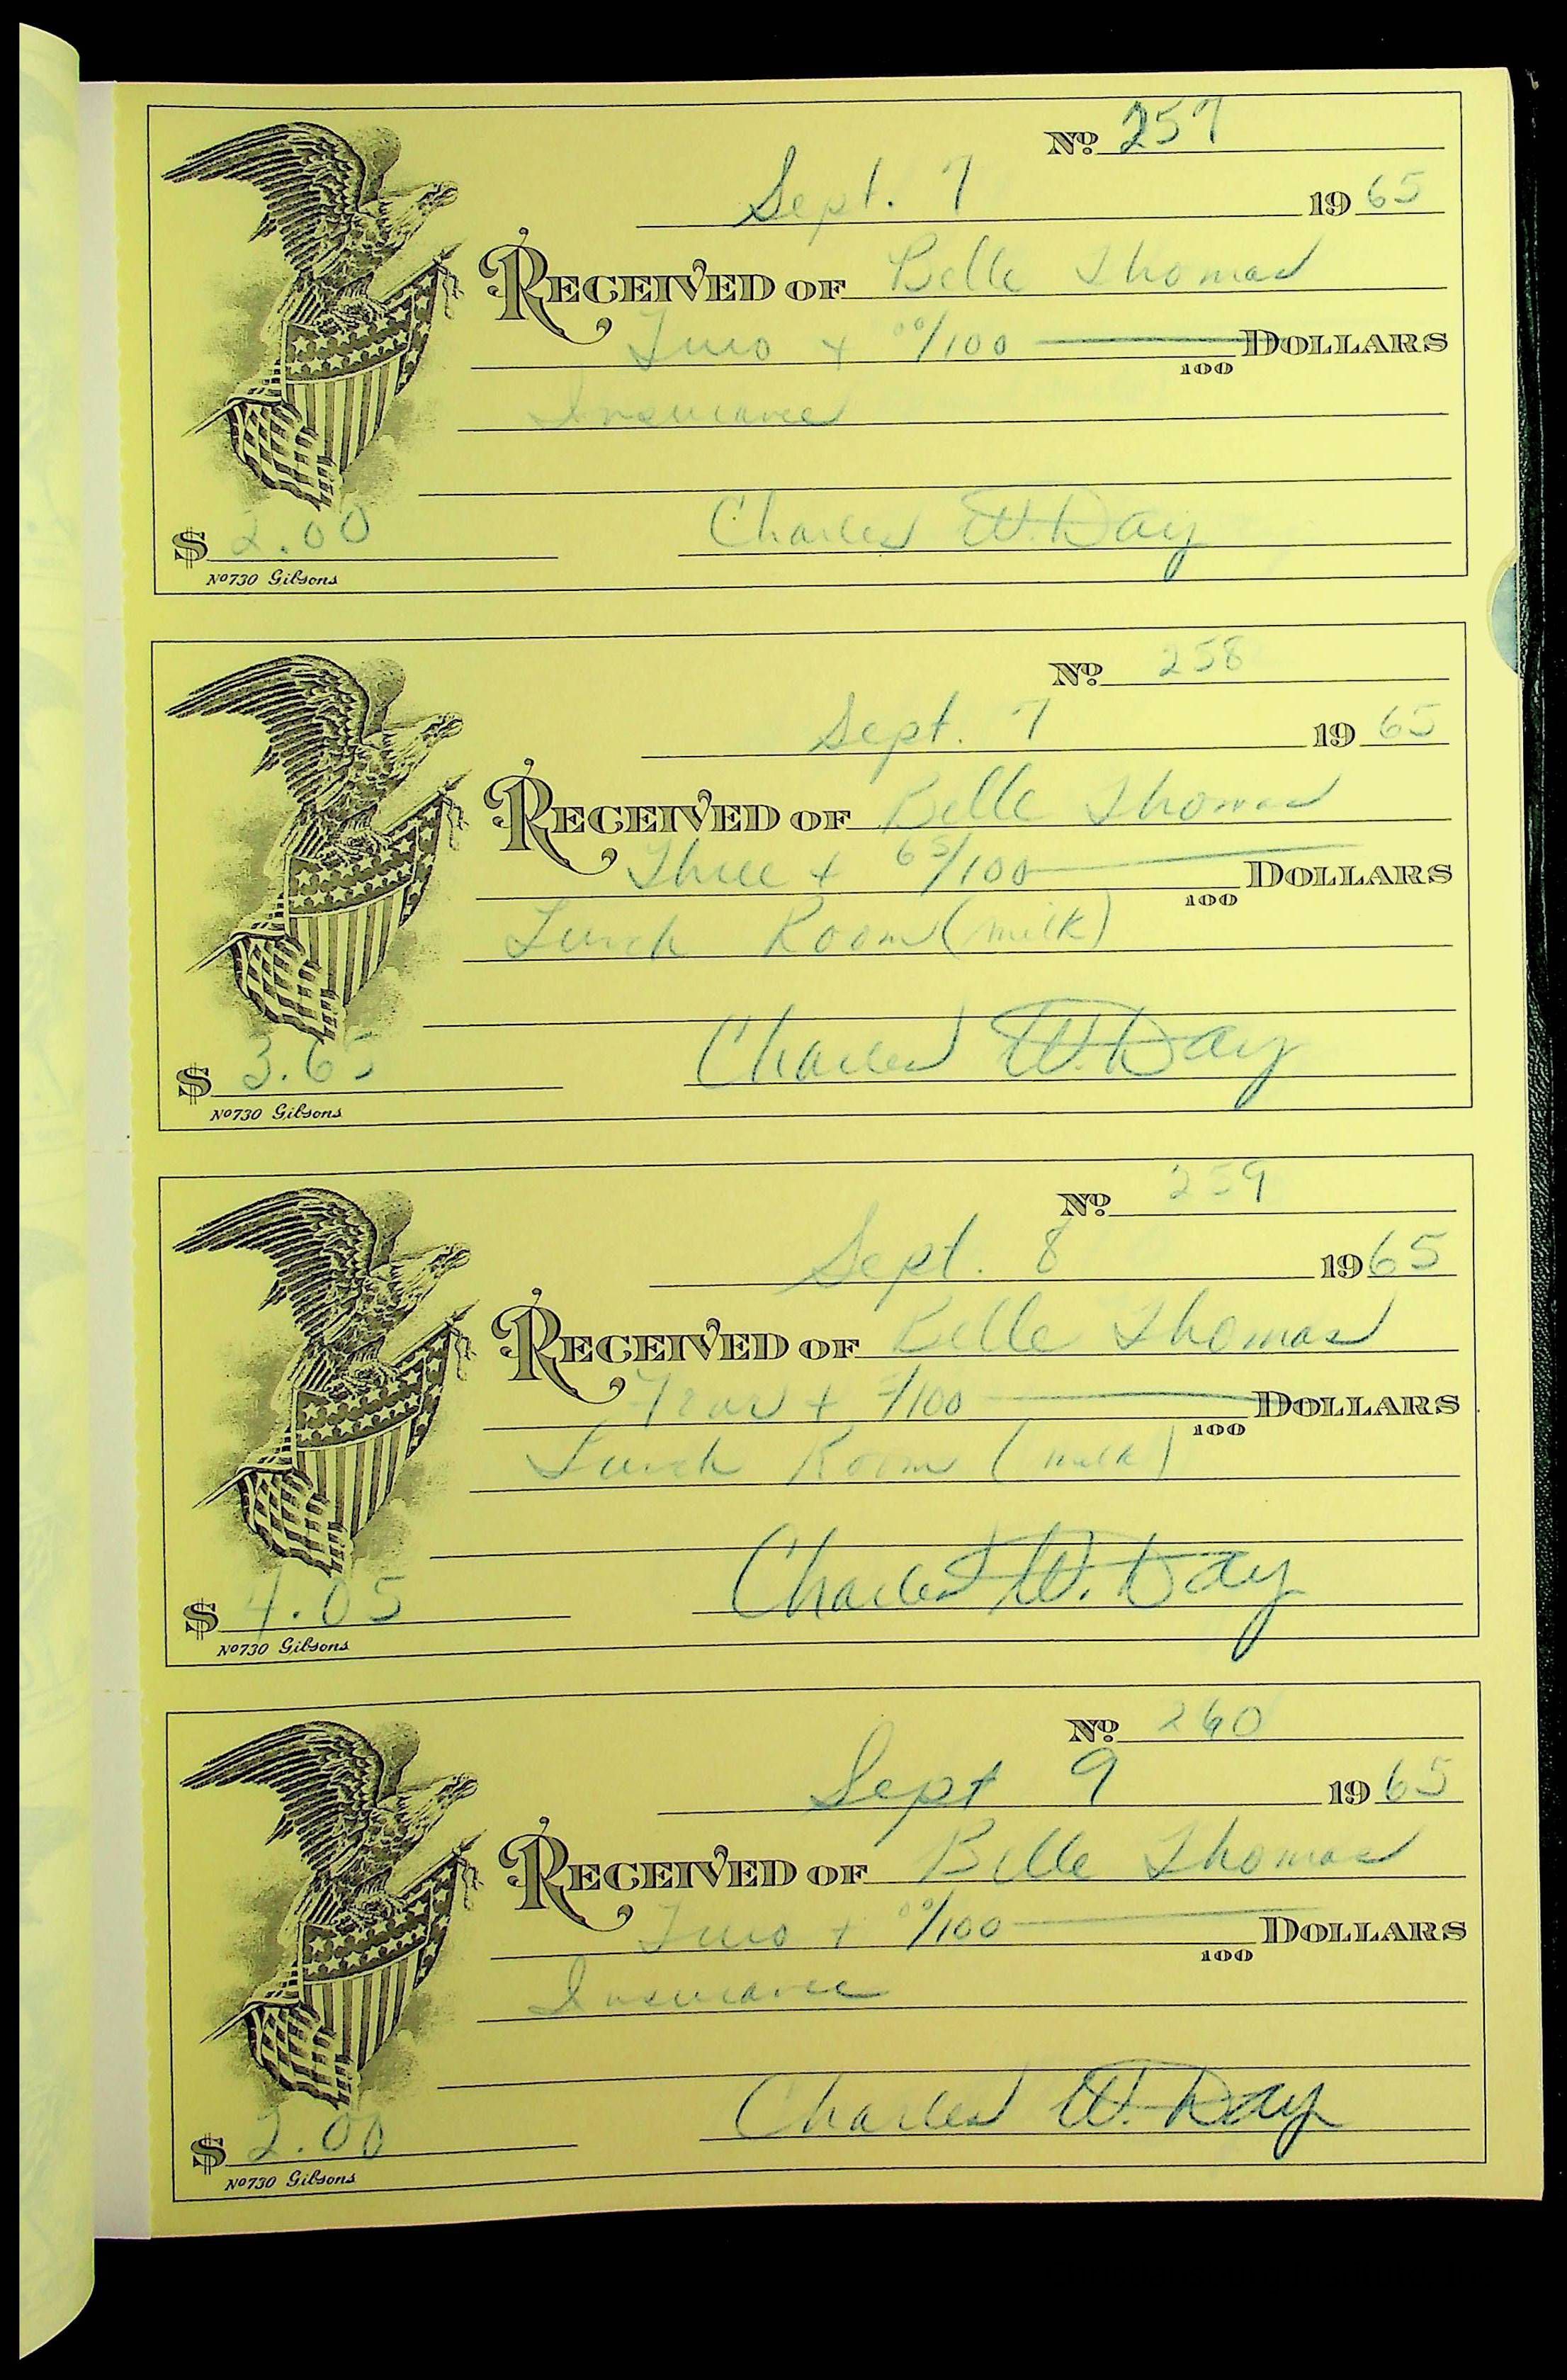 Nº 257
Sept. 7 1965
RECEIVED OF Belle Thomas
Two + 00/100 DOLLARS
100
Insurance
$ 2.00 Charles W. Day
Nº 730 Gibsons
Nº 258
Sept. 7 1965
RECEIVED OF Belle Thomas
Three + 65/100 DOLLARS
100
Lunch Room (milk)
$ 3.65 Charles W. Day
Nº 730 Gibsons
Nº 259
Sept. 8 1965
RECEIVED OF Belle Thomas
Four + /100 DOLLARS
100
Lunch Room (milk)
$ 4.05 Charles W. Day
Nº 730 Gibsons
Nº 260
Sept 9 1965
RECEIVED OF Belle Thomas
Two + 00/100 DOLLARS
100
Insurance
$ 2.00 Charles W. Day
Nº 730 Gibsons